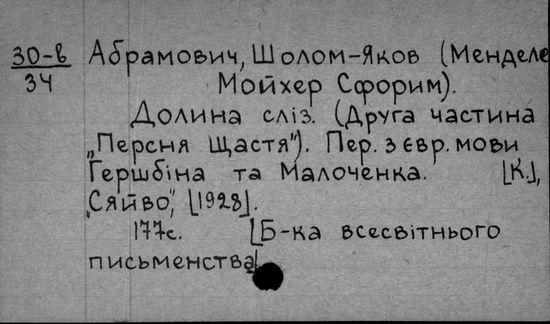 30-в Абрамович, Шолом-Яков (Менделе
34 Мойхер Сфорим).
Долина сліз. (Друга частина
„Персня Щастя"). Пер. з євр. мови
Гершбіна та Малоченка. [К.],
„Сяйво", [1928].
177с. [Б-ка всесвітнього
письменства]